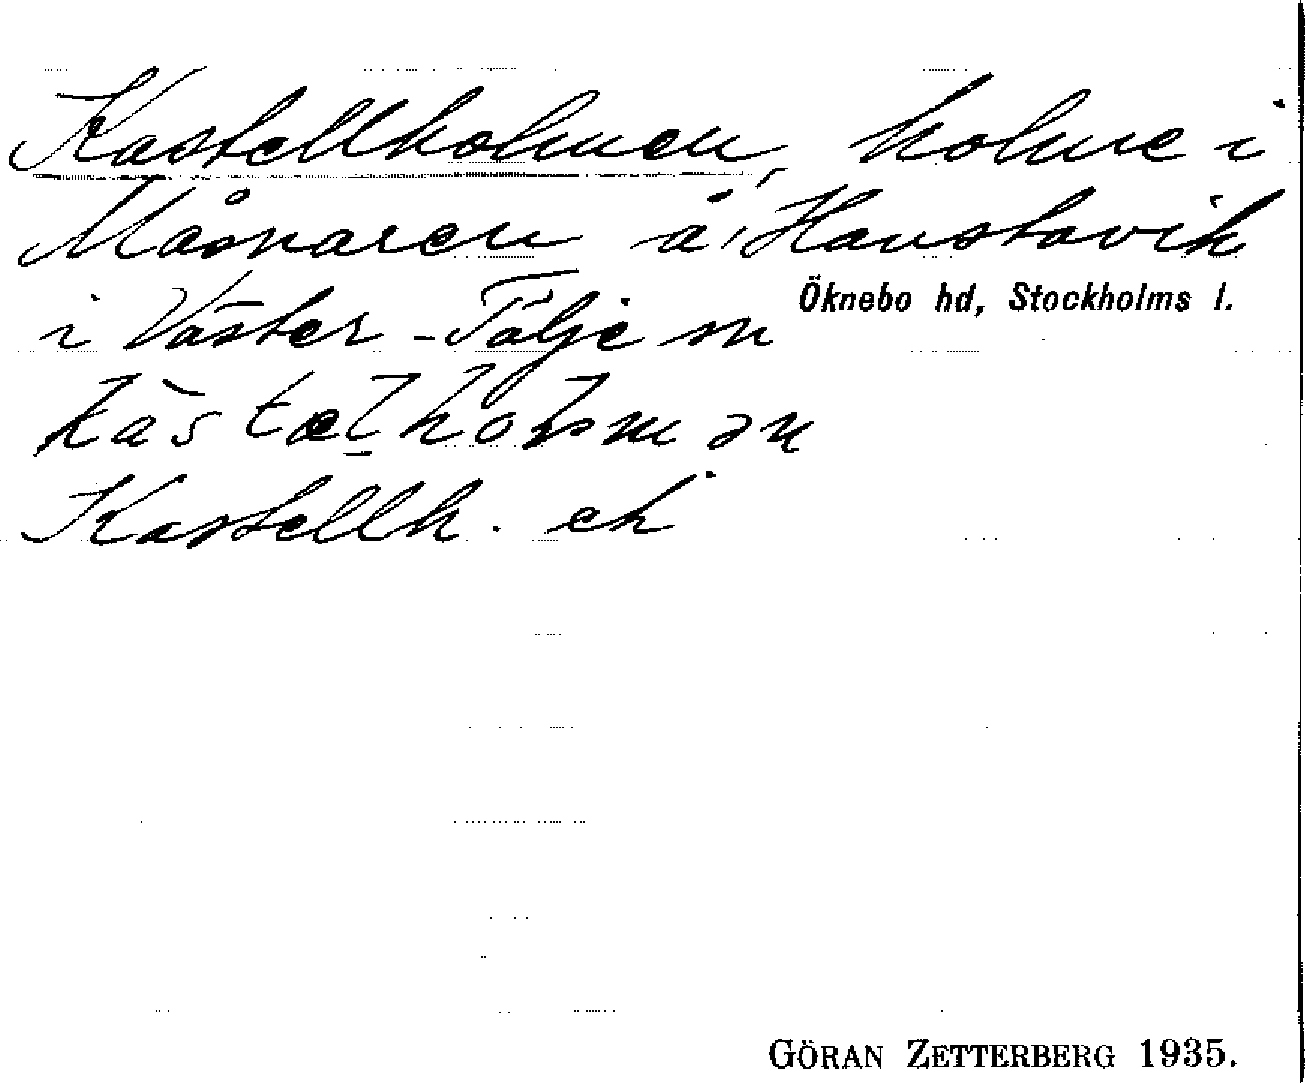 Kastellholmen, holme i
Måsnaren å Hanstavik
i Väster-Tälje sn
Öknebo hd, Stockholms l.
Kastellh. ek
GÖRAN ZETTERBERG 1935.